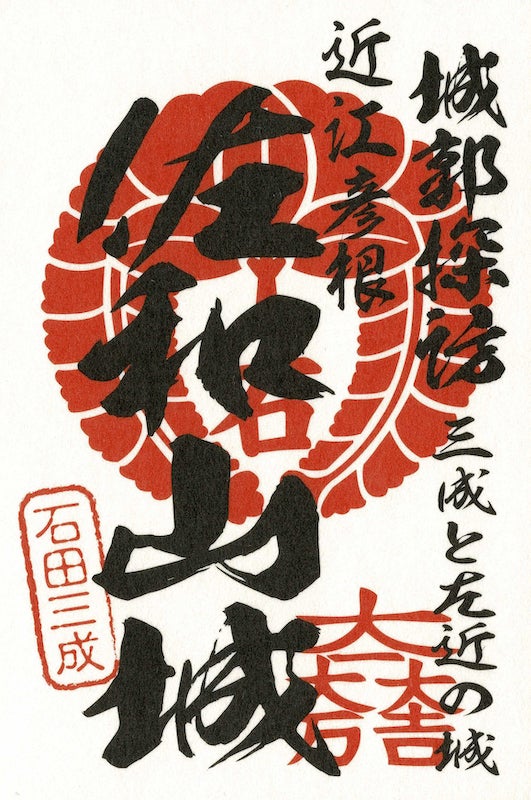 城郭探訪 三成と左近の城
近江彦根
佐和山城
石
大一大万大吉
石田三成